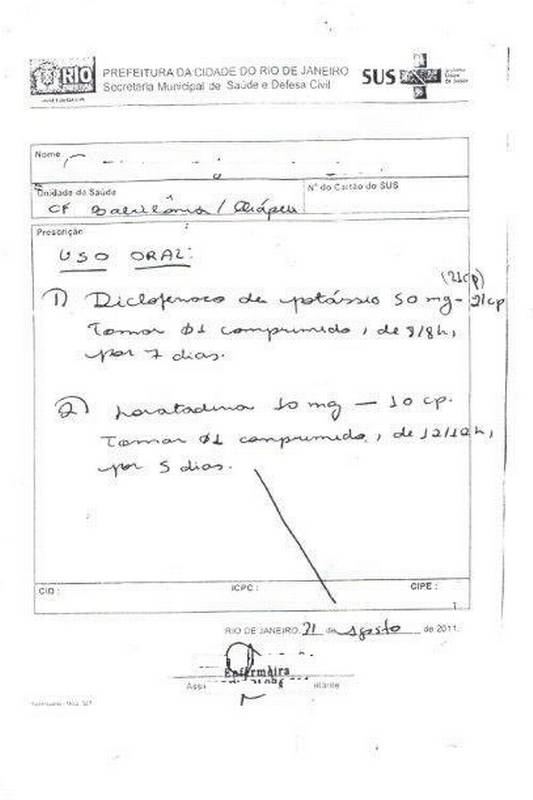 RIO
PREFEITURA DA CIDADE DO RIO DE JANEIRO
Secretaria Municipal de Saúde e Defesa Civil
SUS
Nome
Unidade da Saúde
Nº do Cartão do SUS
CF
Prescrição
USO ORAL:
(21cp)
1) Diclofenaco de potássio 50 mg - 21cp
Tomar 01 comprimido, de 8/8h,
por 7 dias.
2) Loratadina 10 mg — 10 cp.
Tomar 01 comprimido, de 12/12h,
por 5 dias.
CID :
ICPC :
CIPE :
RIO DE JANEIRO, 21 de agosto de 2011.
Enfermeira